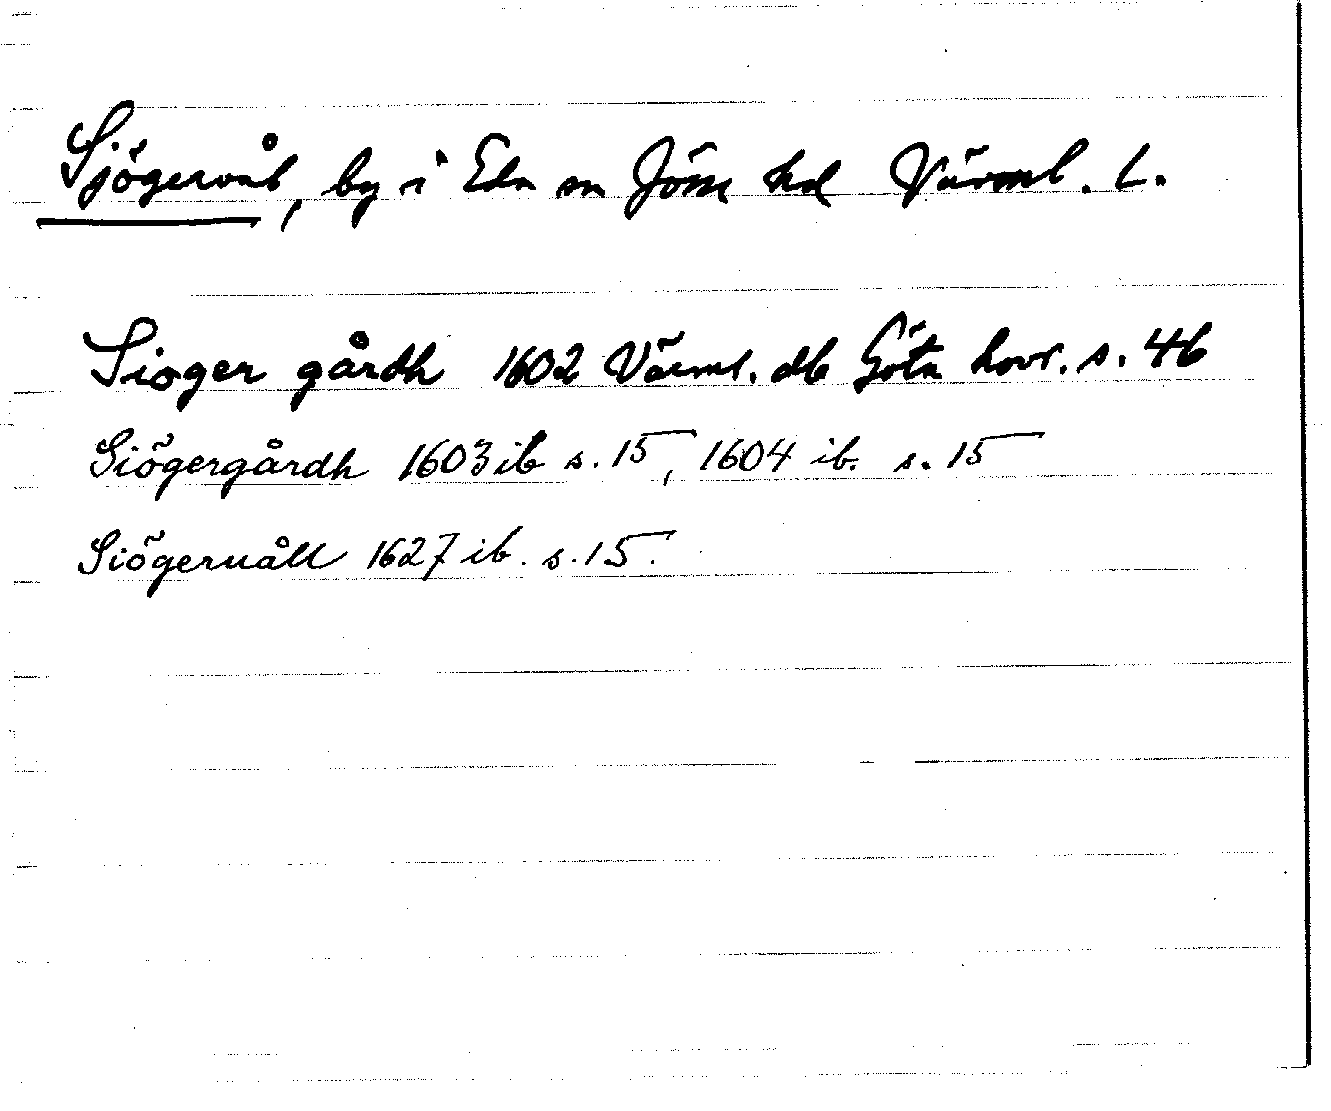 Sjögerås, by i Eda sn Jösse hd Värml. L.
Sioger gårdh 1602 Värml. db Göta hovr. s. 46
Siögergårdh 1603 ib s. 15, 1604 ib. s. 15
Siögeruåll 1627 ib. s. 15.